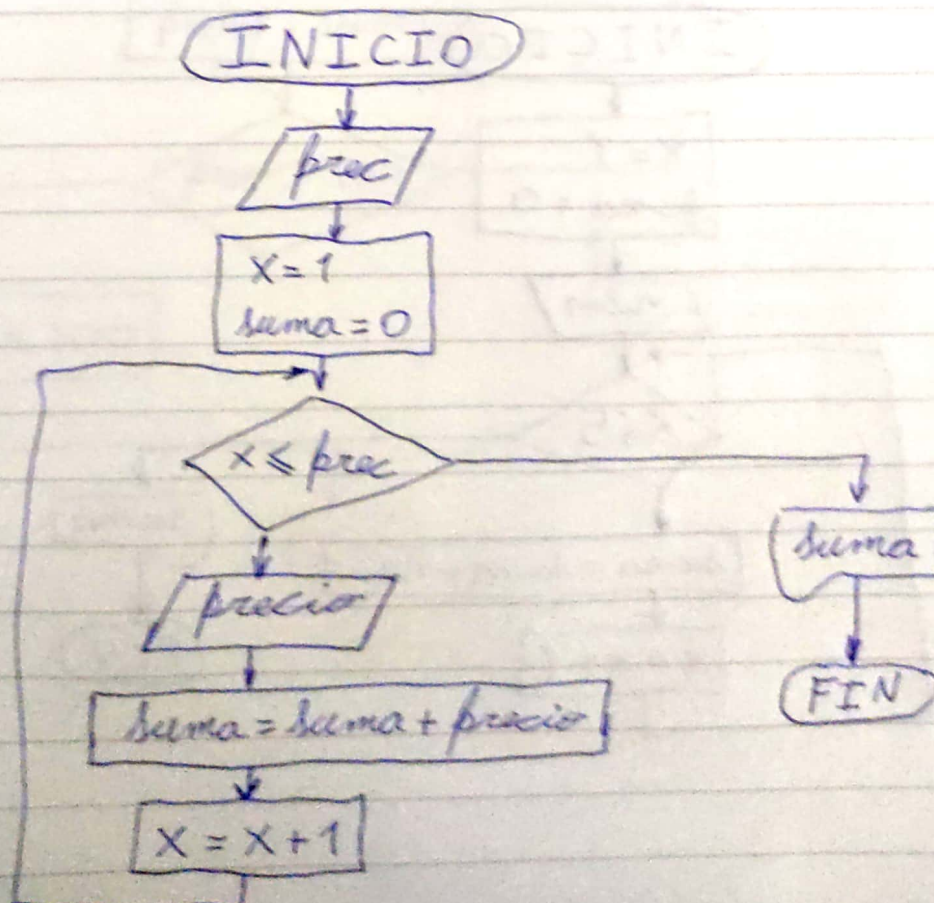 INICIO
prec
x=1
suma=0
x ≤ prec
precio
suma = suma + precio
x = x+1
suma
FIN